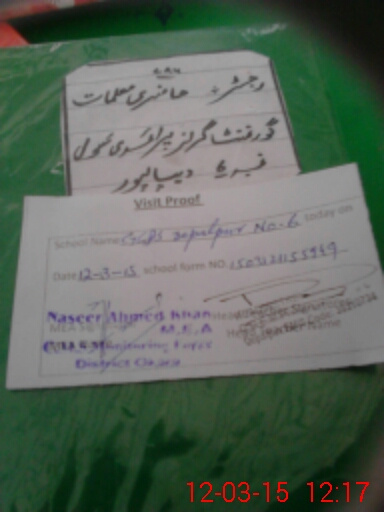 ۷۸۶
رجسٹر حاضری معلمات
گورنمنٹ گرلز پرائمری سکول
نمبر 6 دیپالپور
Visit Proof
School Name GGPS Depalpur No-6 today on
Date 12-3-15 school form NO.
Naseer Ahmed Khan
M.E.A
Monitoring Force
District Okara
12-03-15 12:17